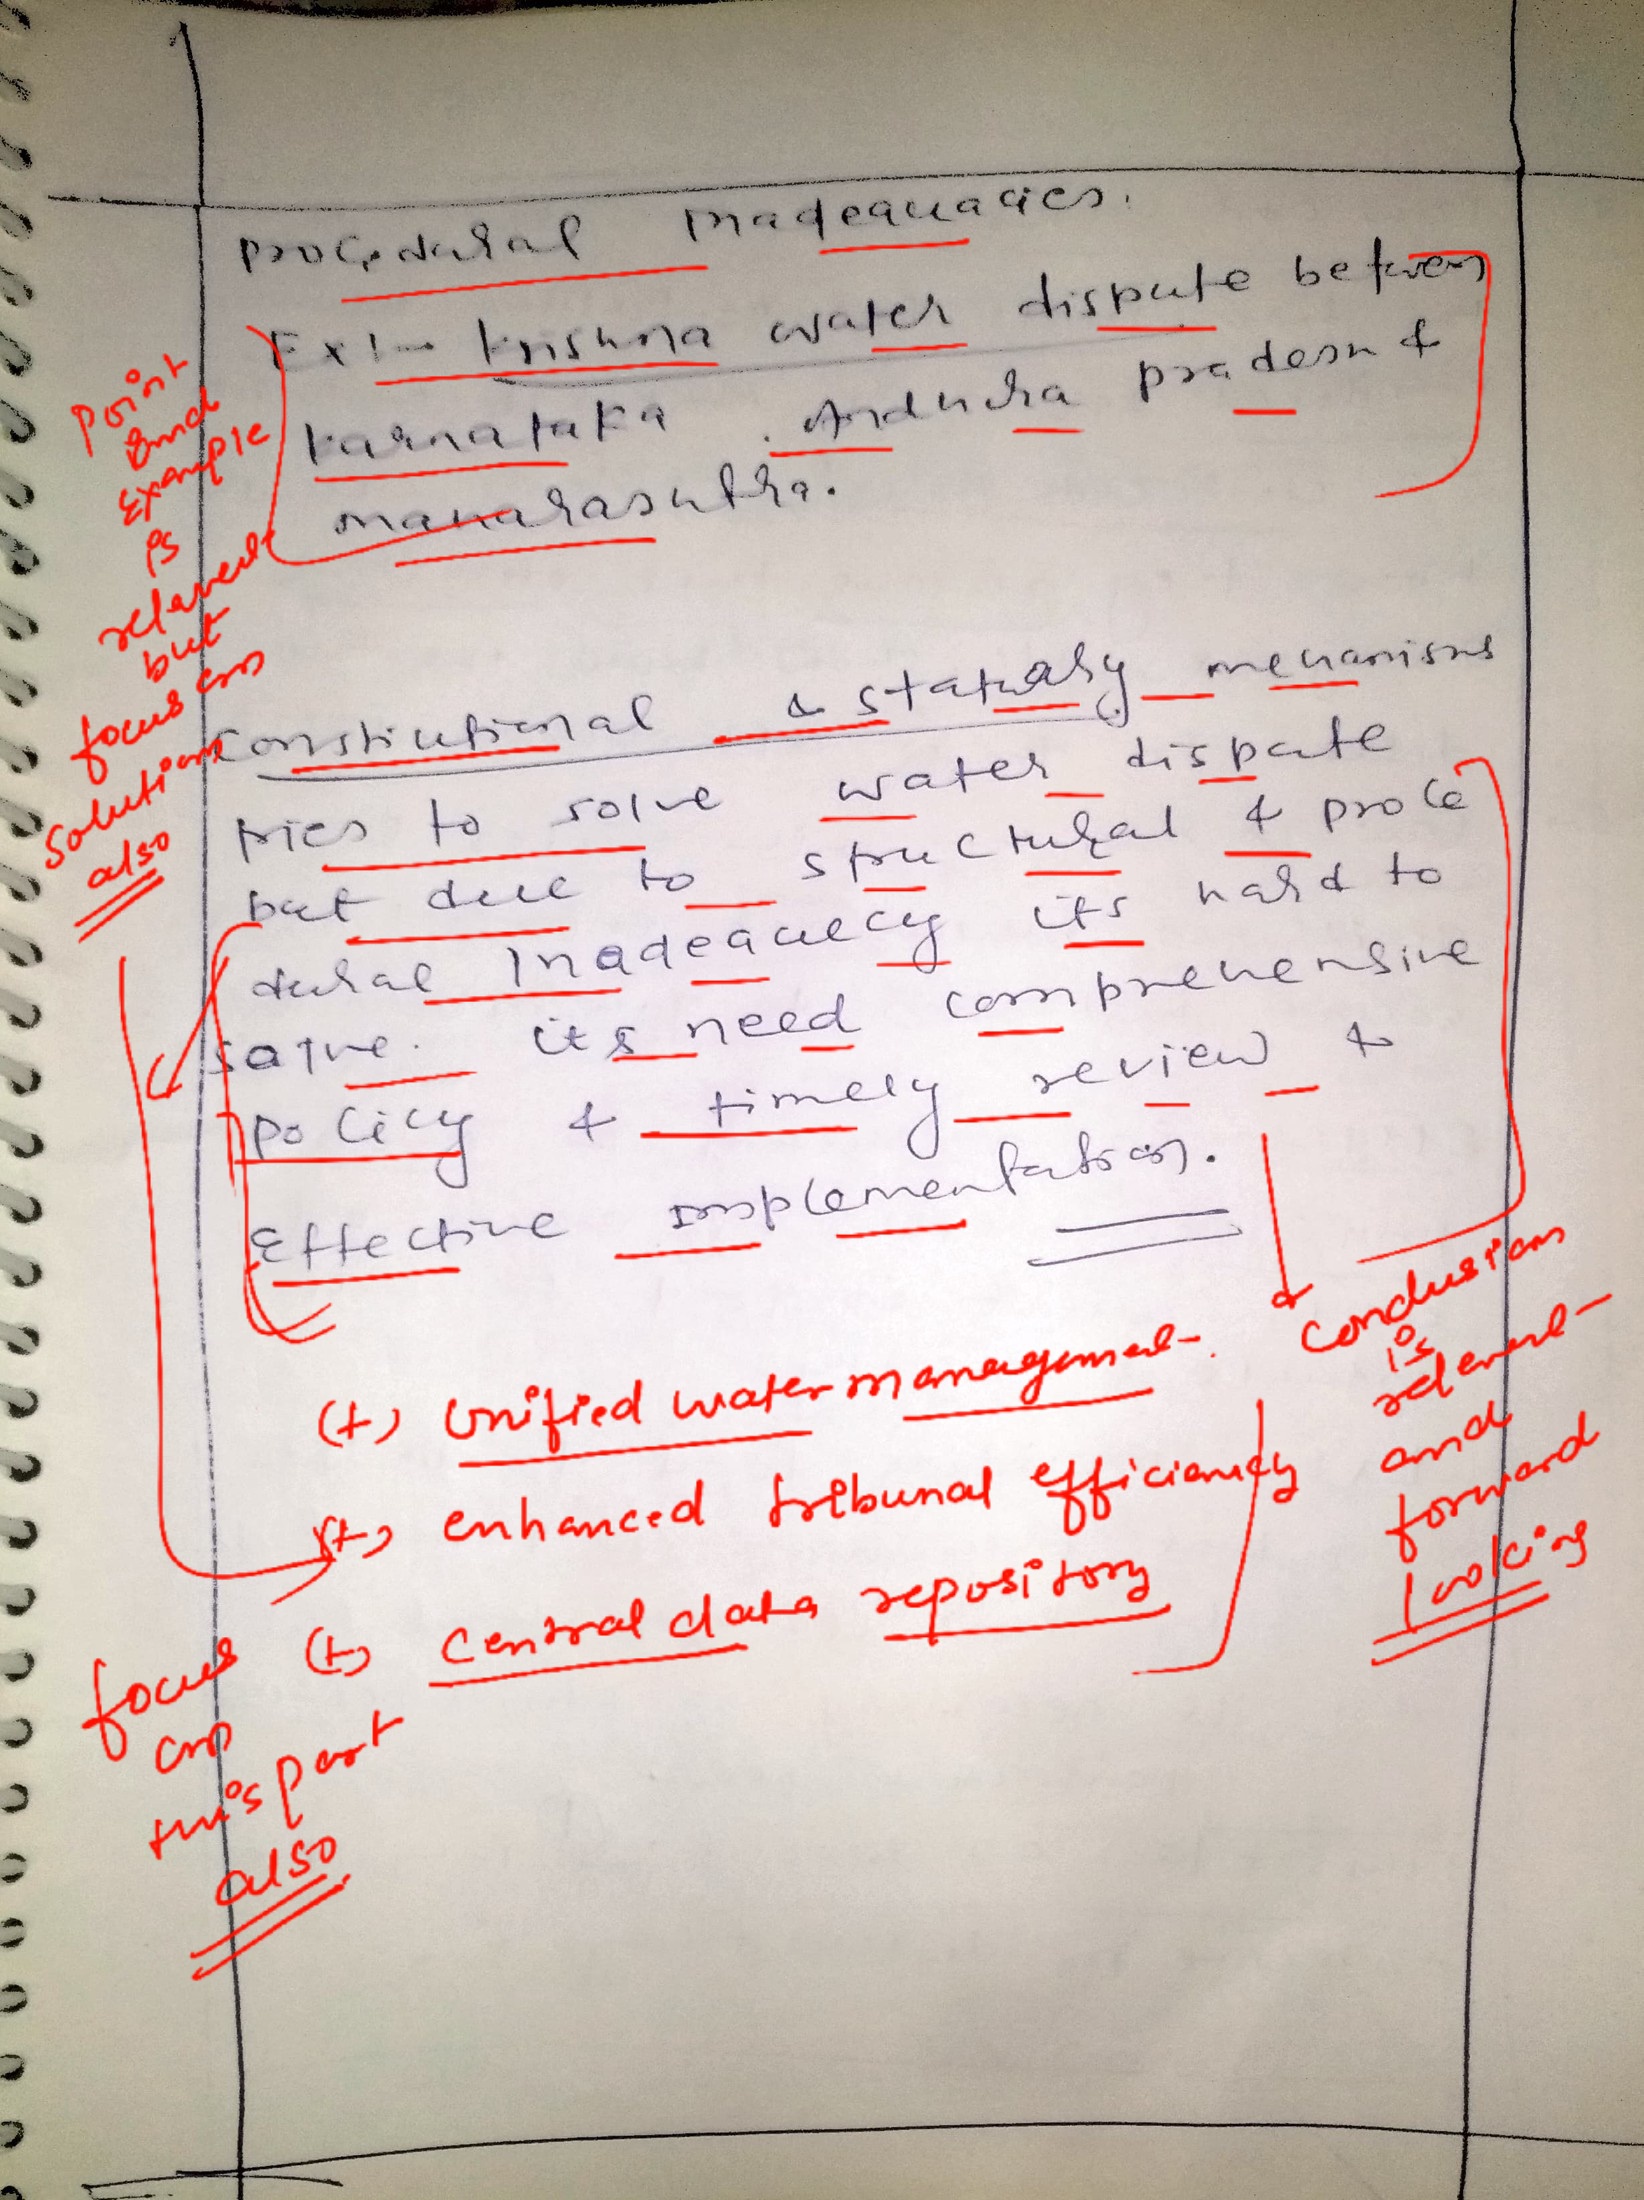 procedural Inadequacies.
Ex:- Krishna water dispute between
Karnataka, Andhra pradesh &
maharashtra.
point
and
Example
is
relevant
but
focus on
solutions
also
Constitutional & statuary mechanisms
tries to solve water dispute
but due to structural & proce
dural Inadequecy its hard to
solve. its need comprehensive
policy & timely review &
Effective implementation.
conclusion
is
relevant
and
forward
looking
(+) Unified water management
(+) enhanced tribunal efficiency
(+) Central data repository
focus
on
this part
also